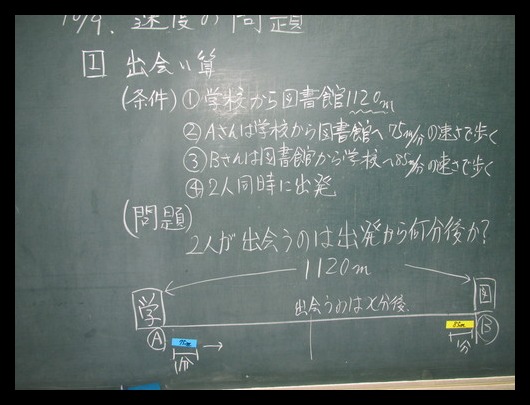 10/9. 速度の問題
1 出会い算
(条件) ① 学校から図書館1120m
② Aさんは学校から図書館へ 75m/分の速さで歩く
③ Bさんは図書館から学校へ85m/分の速さで歩く
④ 2人同時に出発
(問題)
2人が出会うのは出発から何分後か?
1120m
学 出会うのはx分後. 図
A 75m → 85m B
1分 1分